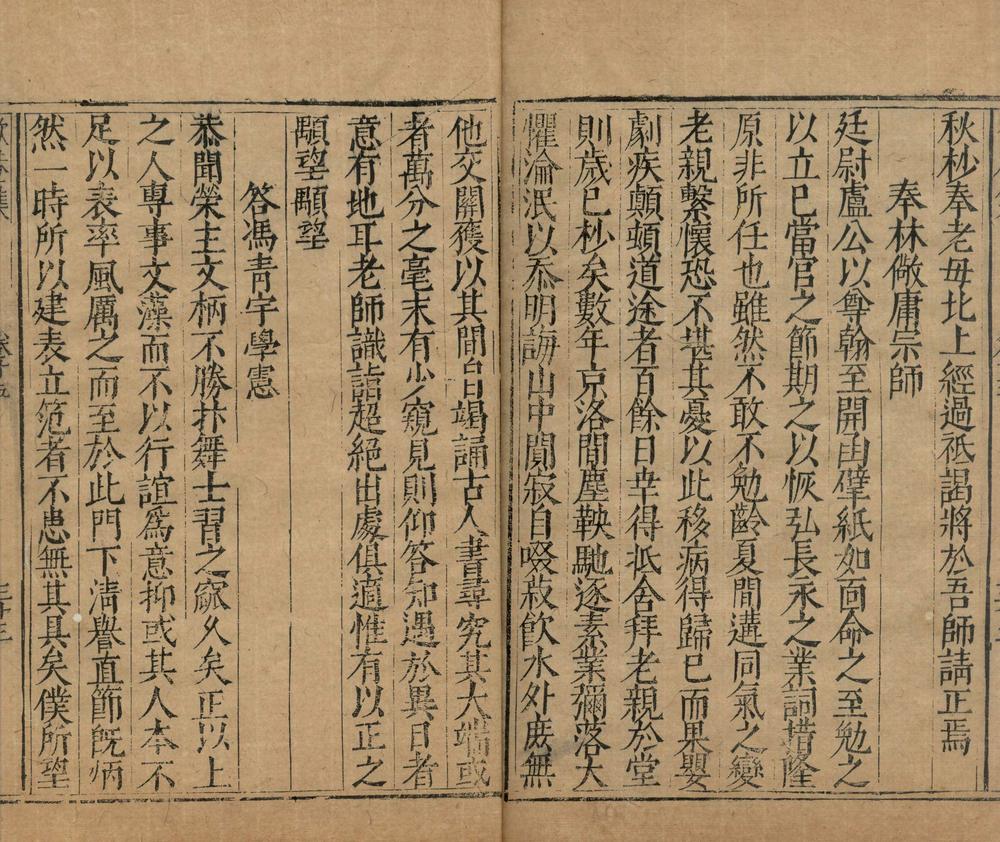 秋杪奉老母北上經過祗謁將於吾師請正焉
奉林儆庸宗師
廷尉盧公以尊翰至開函擘紙如面命之至勉之
以立已當官之節期之以恢弘長永之業詞措隆
原非所任也雖然不敢不勉齡夏間遘同氣之變
老親繫懷恐不堪其憂以此移病得歸已而果嬰
劇疾顛頓道途者百餘日幸得抵舍拜老親於堂
則歲已杪矣數年京洛間塵鞅馳逐素業彌落大
懼淪泯以忝明誨山中閴寂自啜菽飲水外庶無
他交關獲以其間日竭誦古人書尋究其大端或
者萬分之毫末有少窺見則仰答知遇於異日者
意有地耳老師識詣超絕出處俱適惟有以正之
顒望顒望
答馮青宇學憲
恭聞榮主文柄不勝抃舞士習之窳久矣正以上
之人專事文藻而不以行誼爲意抑或其人本不
足以表率風厲之而至於此門下清譽直節旣炳
然一時所以建表立范者不患無其具矣僕所望